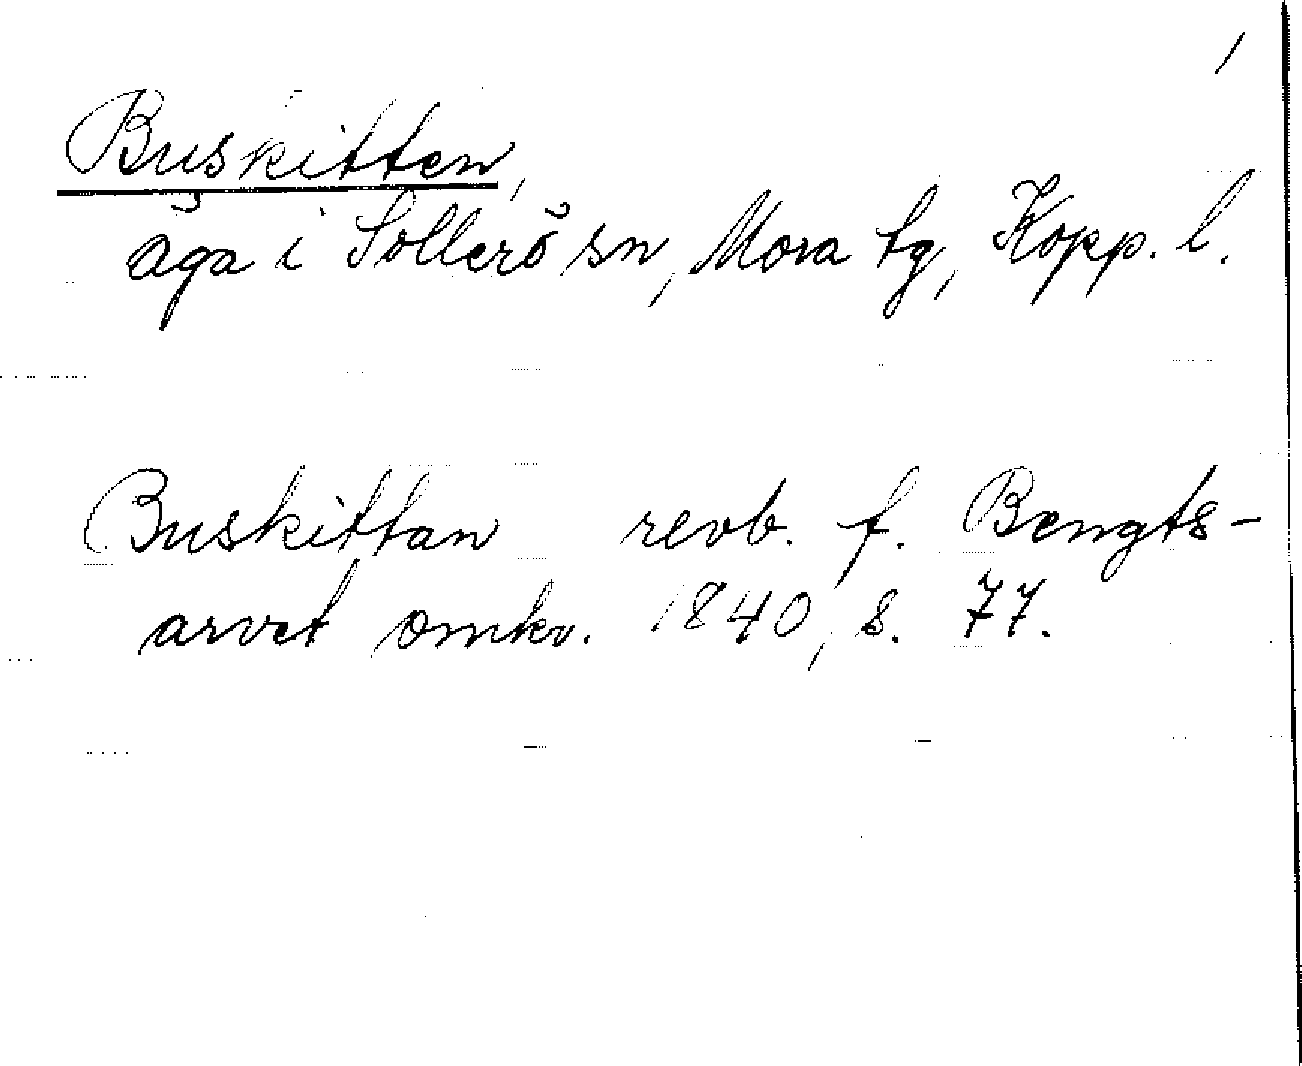 /
Buskitten,
äga i Sollerö sn, Mora tg, Kopp. l.
Buskittan revb. f. Bengts-
arvet omkv. 1840, s. 77.